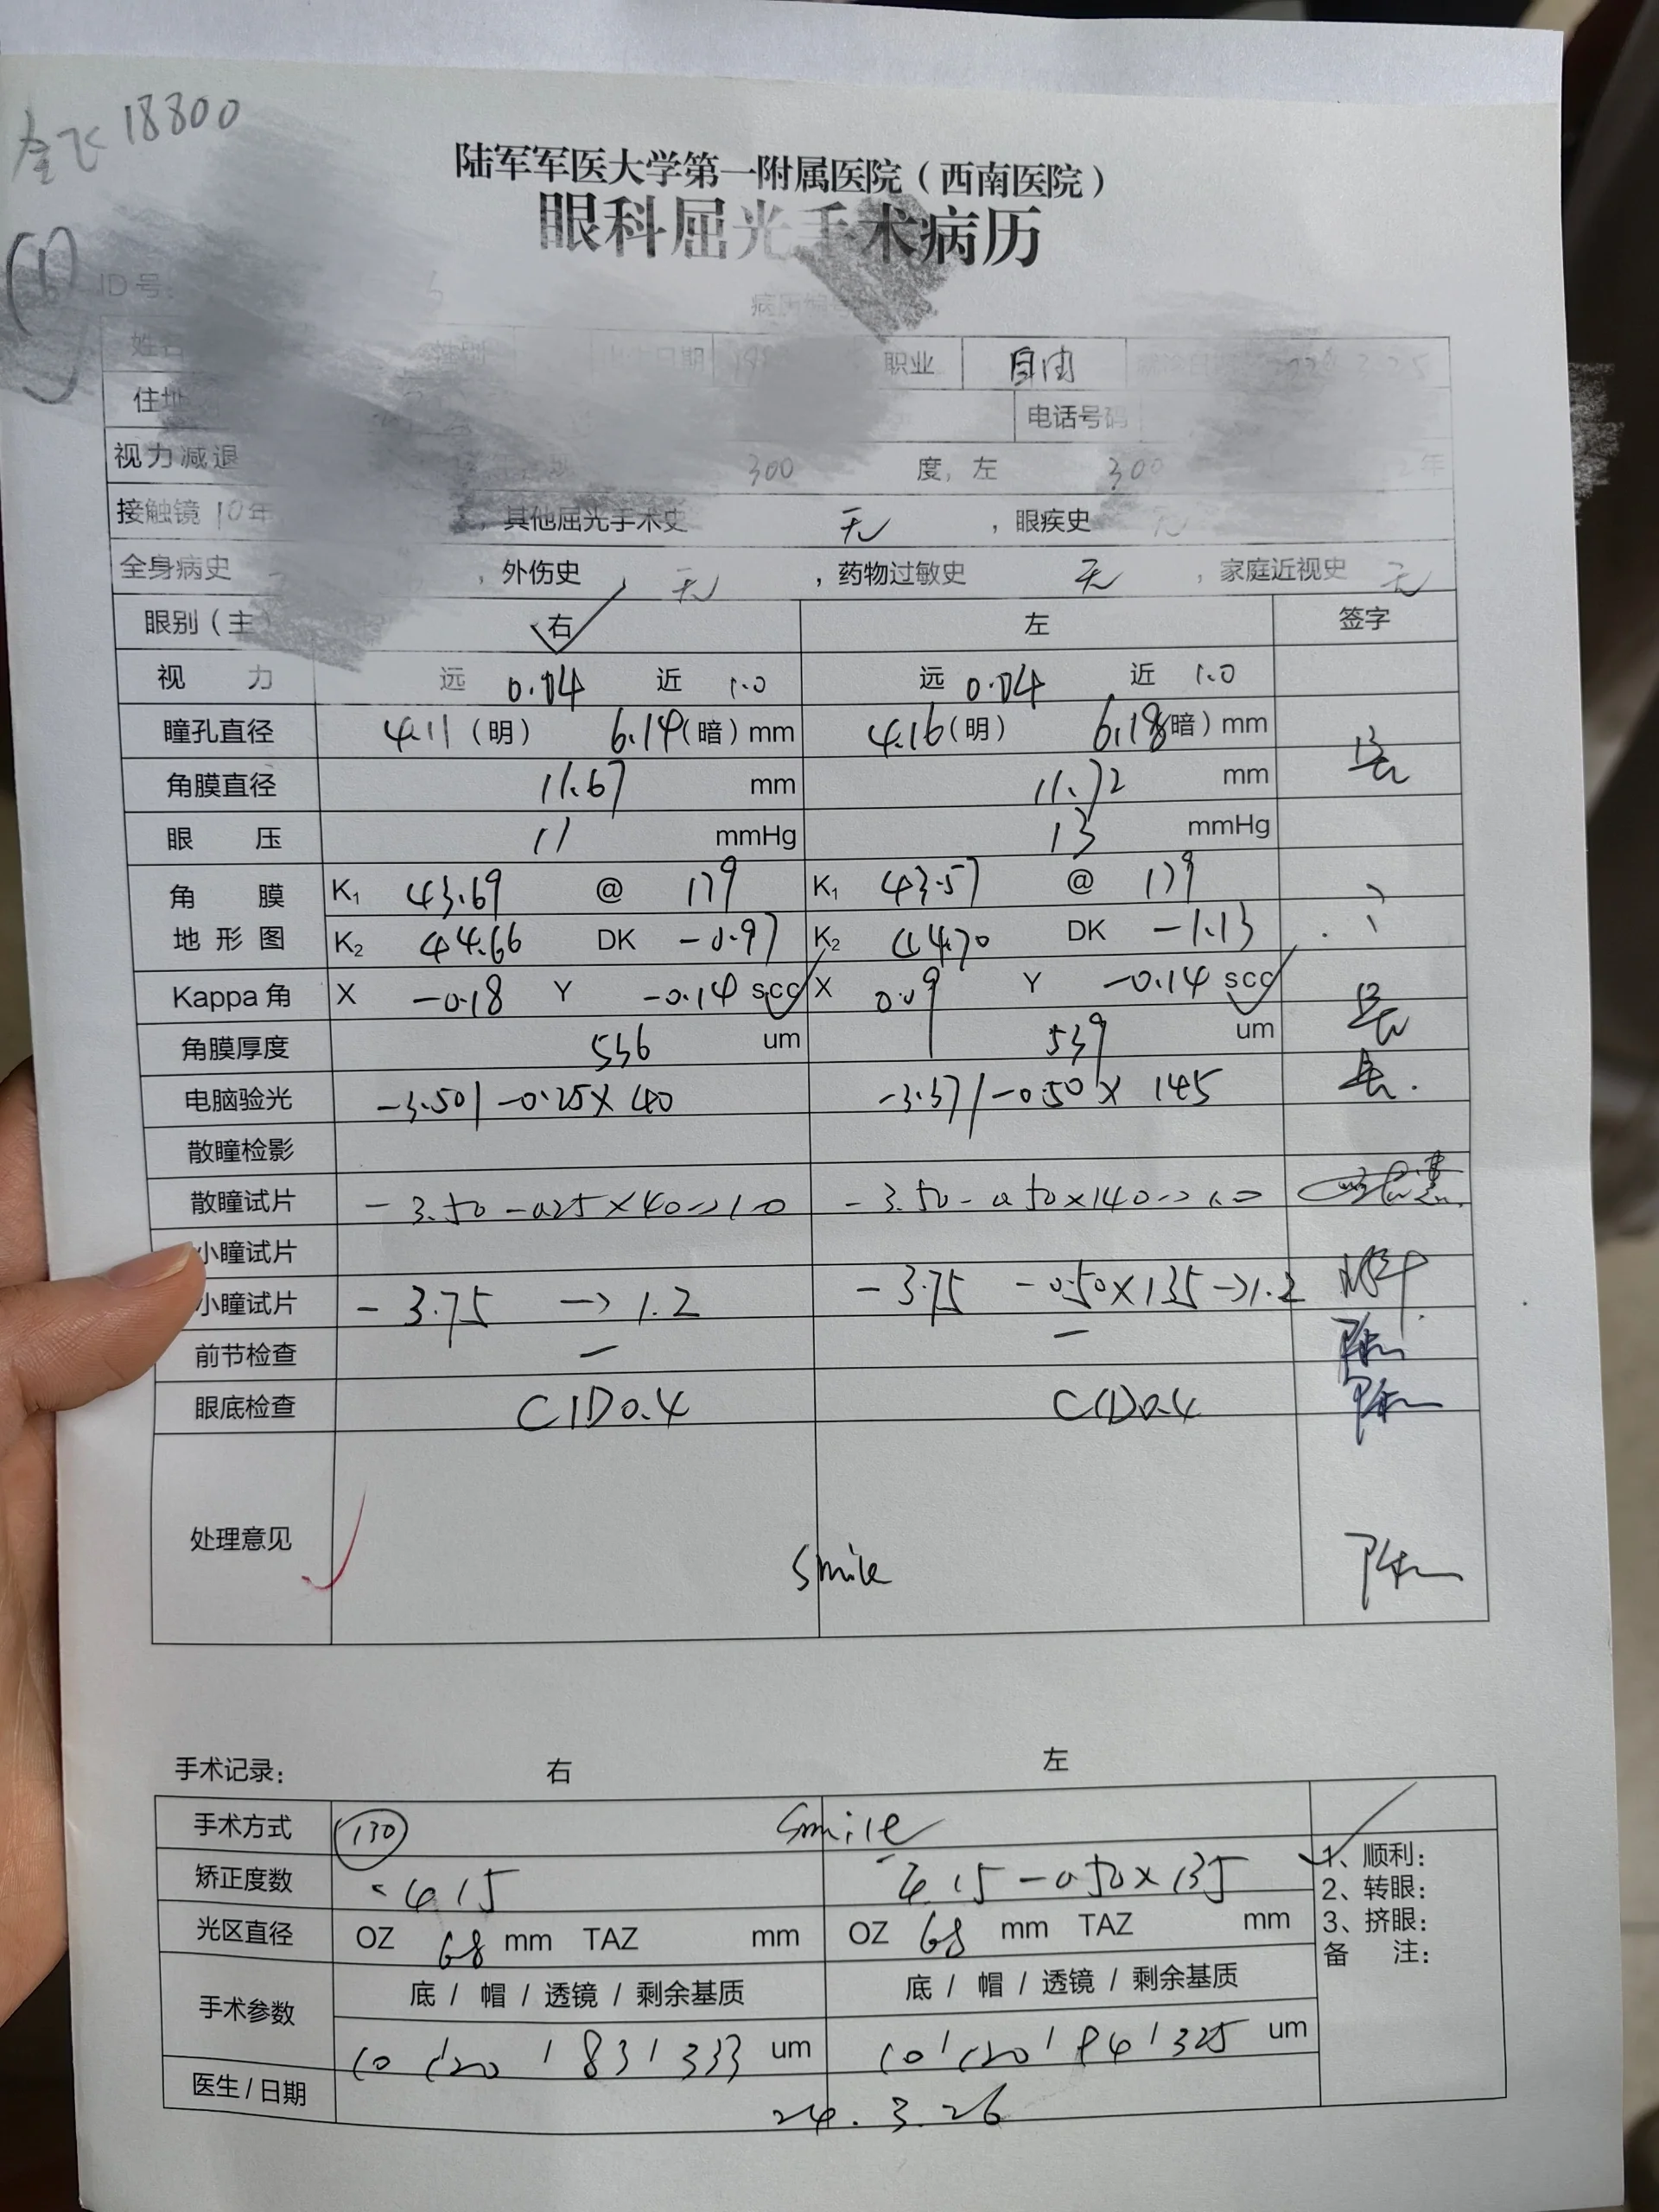 全飞 18800
陆军军医大学第一附属医院（西南医院）
眼科屈光手术病历
ID号：
姓名 性别 日期 职业 自由
住址 电话号码
视力减退 300 度，左 300 年
接触镜 10年 ，其他屈光手术史 无 ，眼疾史 无
全身病史 ，外伤史 无 ，药物过敏史 无 ，家庭近视史 无
眼别（主 右 左 签字
视力 远 0.04 近 1.0 远 0.04 近 1.0
瞳孔直径 4.11（明） 6.14（暗）mm 4.16（明） 6.18（暗）mm
角膜直径 11.67 mm 11.72 mm
眼压 11 mmHg 13 mmHg
角膜地形图 K₁ 43.69 @ 179 K₁ 43.57 @ 179
K₂ 44.66 DK -0.97 K₂ 44.70 DK -1.13
Kappa角 X -0.18 Y -0.14 scc X 0.09 Y -0.14 scc
角膜厚度 536 um 539 um
电脑验光 -3.50/-0.25×40 -3.37/-0.50×145
散瞳检影
散瞳试片 -3.50-0.25×40→1.0 -3.50-0.50×140→1.0
小瞳试片
小瞳试片 -3.75 →1.2 -3.75 -0.50×135→1.2
前节检查 - -
眼底检查 C/D0.4 C/D0.4
处理意见 Smile
手术记录： 右 左
手术方式 130 Smile
矫正度数 -4.15 -4.15-0.50×135
1、顺利：
2、转眼：
3、挤眼：
备 注：
光区直径 OZ 6.8 mm TAZ mm OZ 6.8 mm TAZ mm
手术参数 底 / 帽 / 透镜 / 剩余基质 底 / 帽 / 透镜 / 剩余基质
10/120/83/333 um 10/120/94/325 um
医生/日期 24.3.26